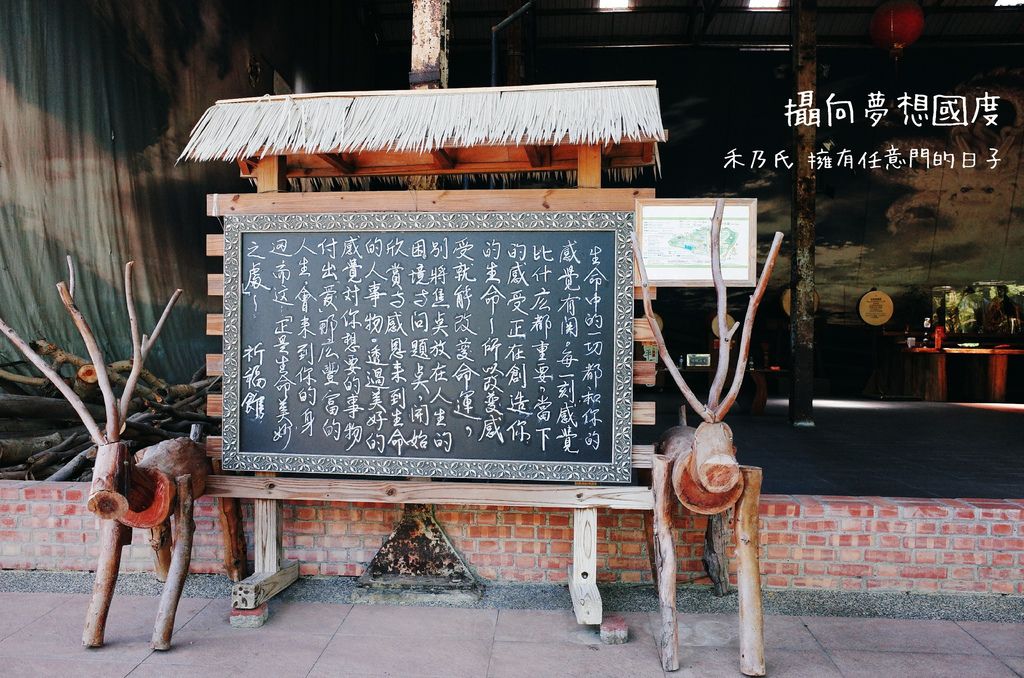 攝向夢想國度
禾乃氏 擁有任意門的日子
生命中的一切都和你的
感覺有關。每一刻感覺
比什庅都重要。當下
的感受正在創造你
的生命~所以改變感
受就能改變命運。
別將焦点放在人生的
困境与問題点,開始
欣賞与感恩来到生命
的人事物。透過美好的
感覺对你想要的事物
付出愛,那庅豐富的
人生,會来到你的身
边而这正是生命美妙
之處~ 祈福館